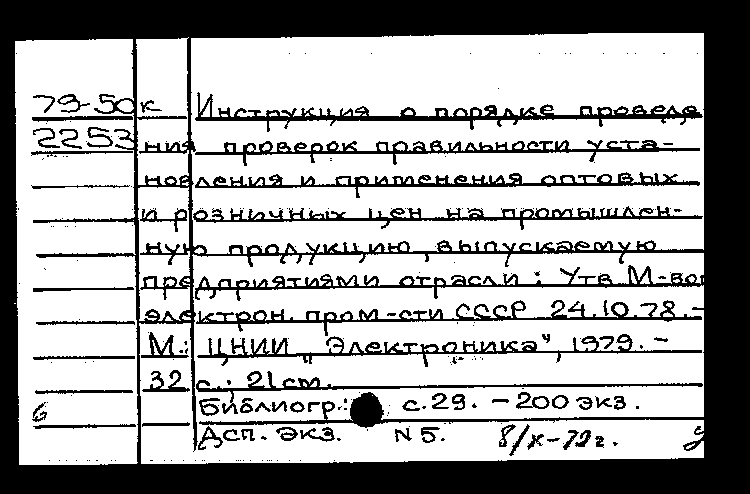 79-50к Инструкция о порядке проведе
2253 ния проверок правильности уста-
новления и применения оптовых
и розничных цен на промышлен-
ную продукцию, выпускаемую
предприятиями отрасли: Утв М-вом
электрон. пром-сти СССР 24.10.78.-
М.: ЦНИИ „Электроника", 1979. -
32 с.; 21см.
6 Библиогр.: с.29. - 200 экз.
Дсп. экз. N 5. 8/х-79г.